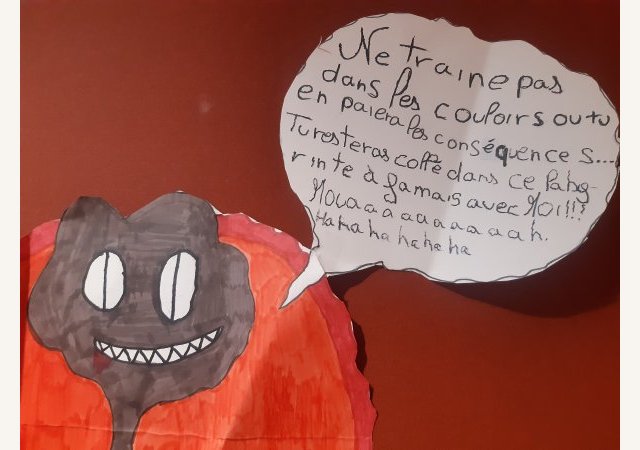 Ne traine pas
dans les couloirs ou tu
en paiera les conséquence s...
Tu resteras collé dans ce Laby-
rinte à Jamais avec Moi!!!
Mouaaaaaaaaaah.
Hahahahahaha